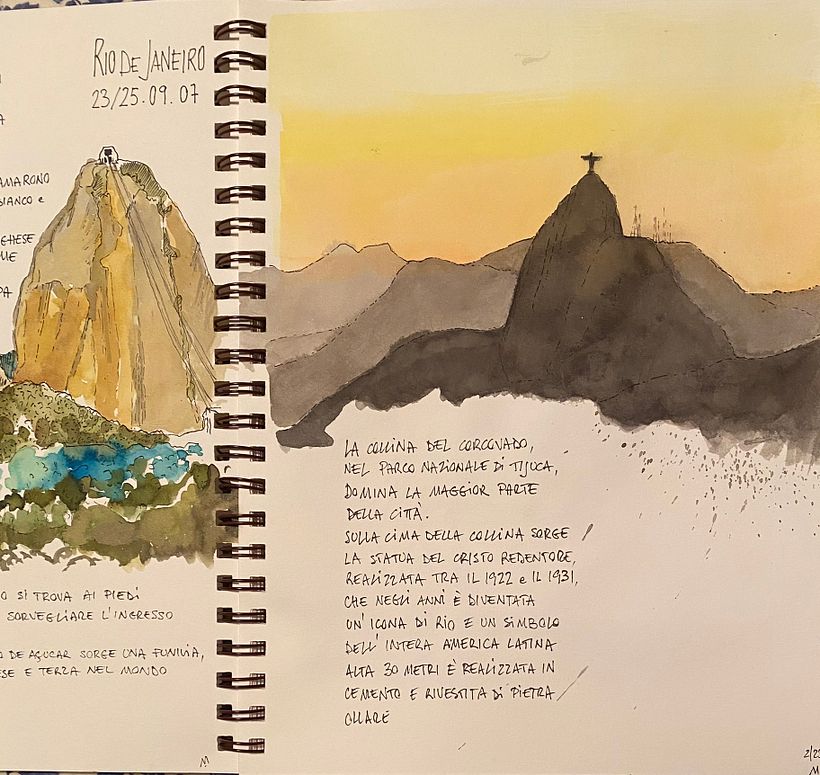 RIO DE JANEIRO
23/25.09.07
AMARONO
BIANCO e
GHESE
UE
PA
O SI TROVA AI PIEDI
SORVEGLIARE L'INGRESSO
O DE AÇUCAR SORGE UNA FUNIVIA,
ESE E TERZA NEL MONDO
M
LA COLLINA DEL CORCOVADO,
NEL PARCO NAZIONALE DI TIJUCA,
DOMINA LA MAGGIOR PARTE
DELLA CITTÀ.
SULLA CIMA DELLA COLLINA SORGE
LA STATUA DEL CRISTO REDENTORE,
REALIZZATA TRA IL 1922 e IL 1931,
CHE NEGLI ANNI È DIVENTATA
UN'ICONA DI RIO E UN SIMBOLO
DELL'INTERA AMERICA LATINA
ALTA 30 METRI È REALIZZATA IN
CEMENTO E RIVESTITA DI PIETRA
OLLARE
2/23
M